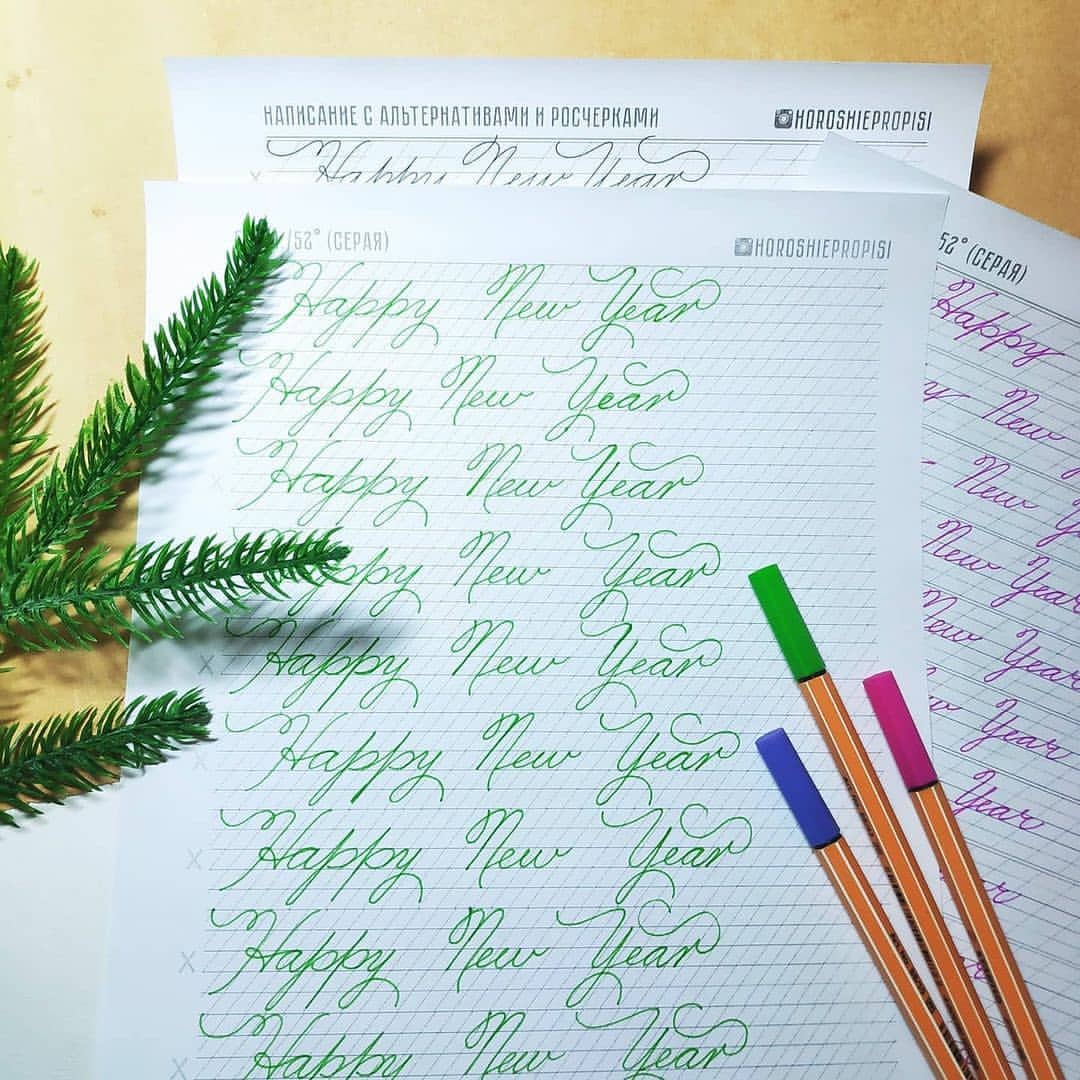 НАПИСАНИЕ С АЛЬТЕРНАТИВАМИ И РОСЧЕРКАМИ HOROSHIEPROPISI
Happy New Year
/52° (СЕРАЯ) HOROSHIEPROPISI
Happy New Year
Happy New Year
Happy New Year
Happy New Year
Happy New Year
Happy New Year
Happy New Year
Happy New Year
Happy New Year
52° (СЕРАЯ)
Happy
New
New
New Year
New Year
Year
Year